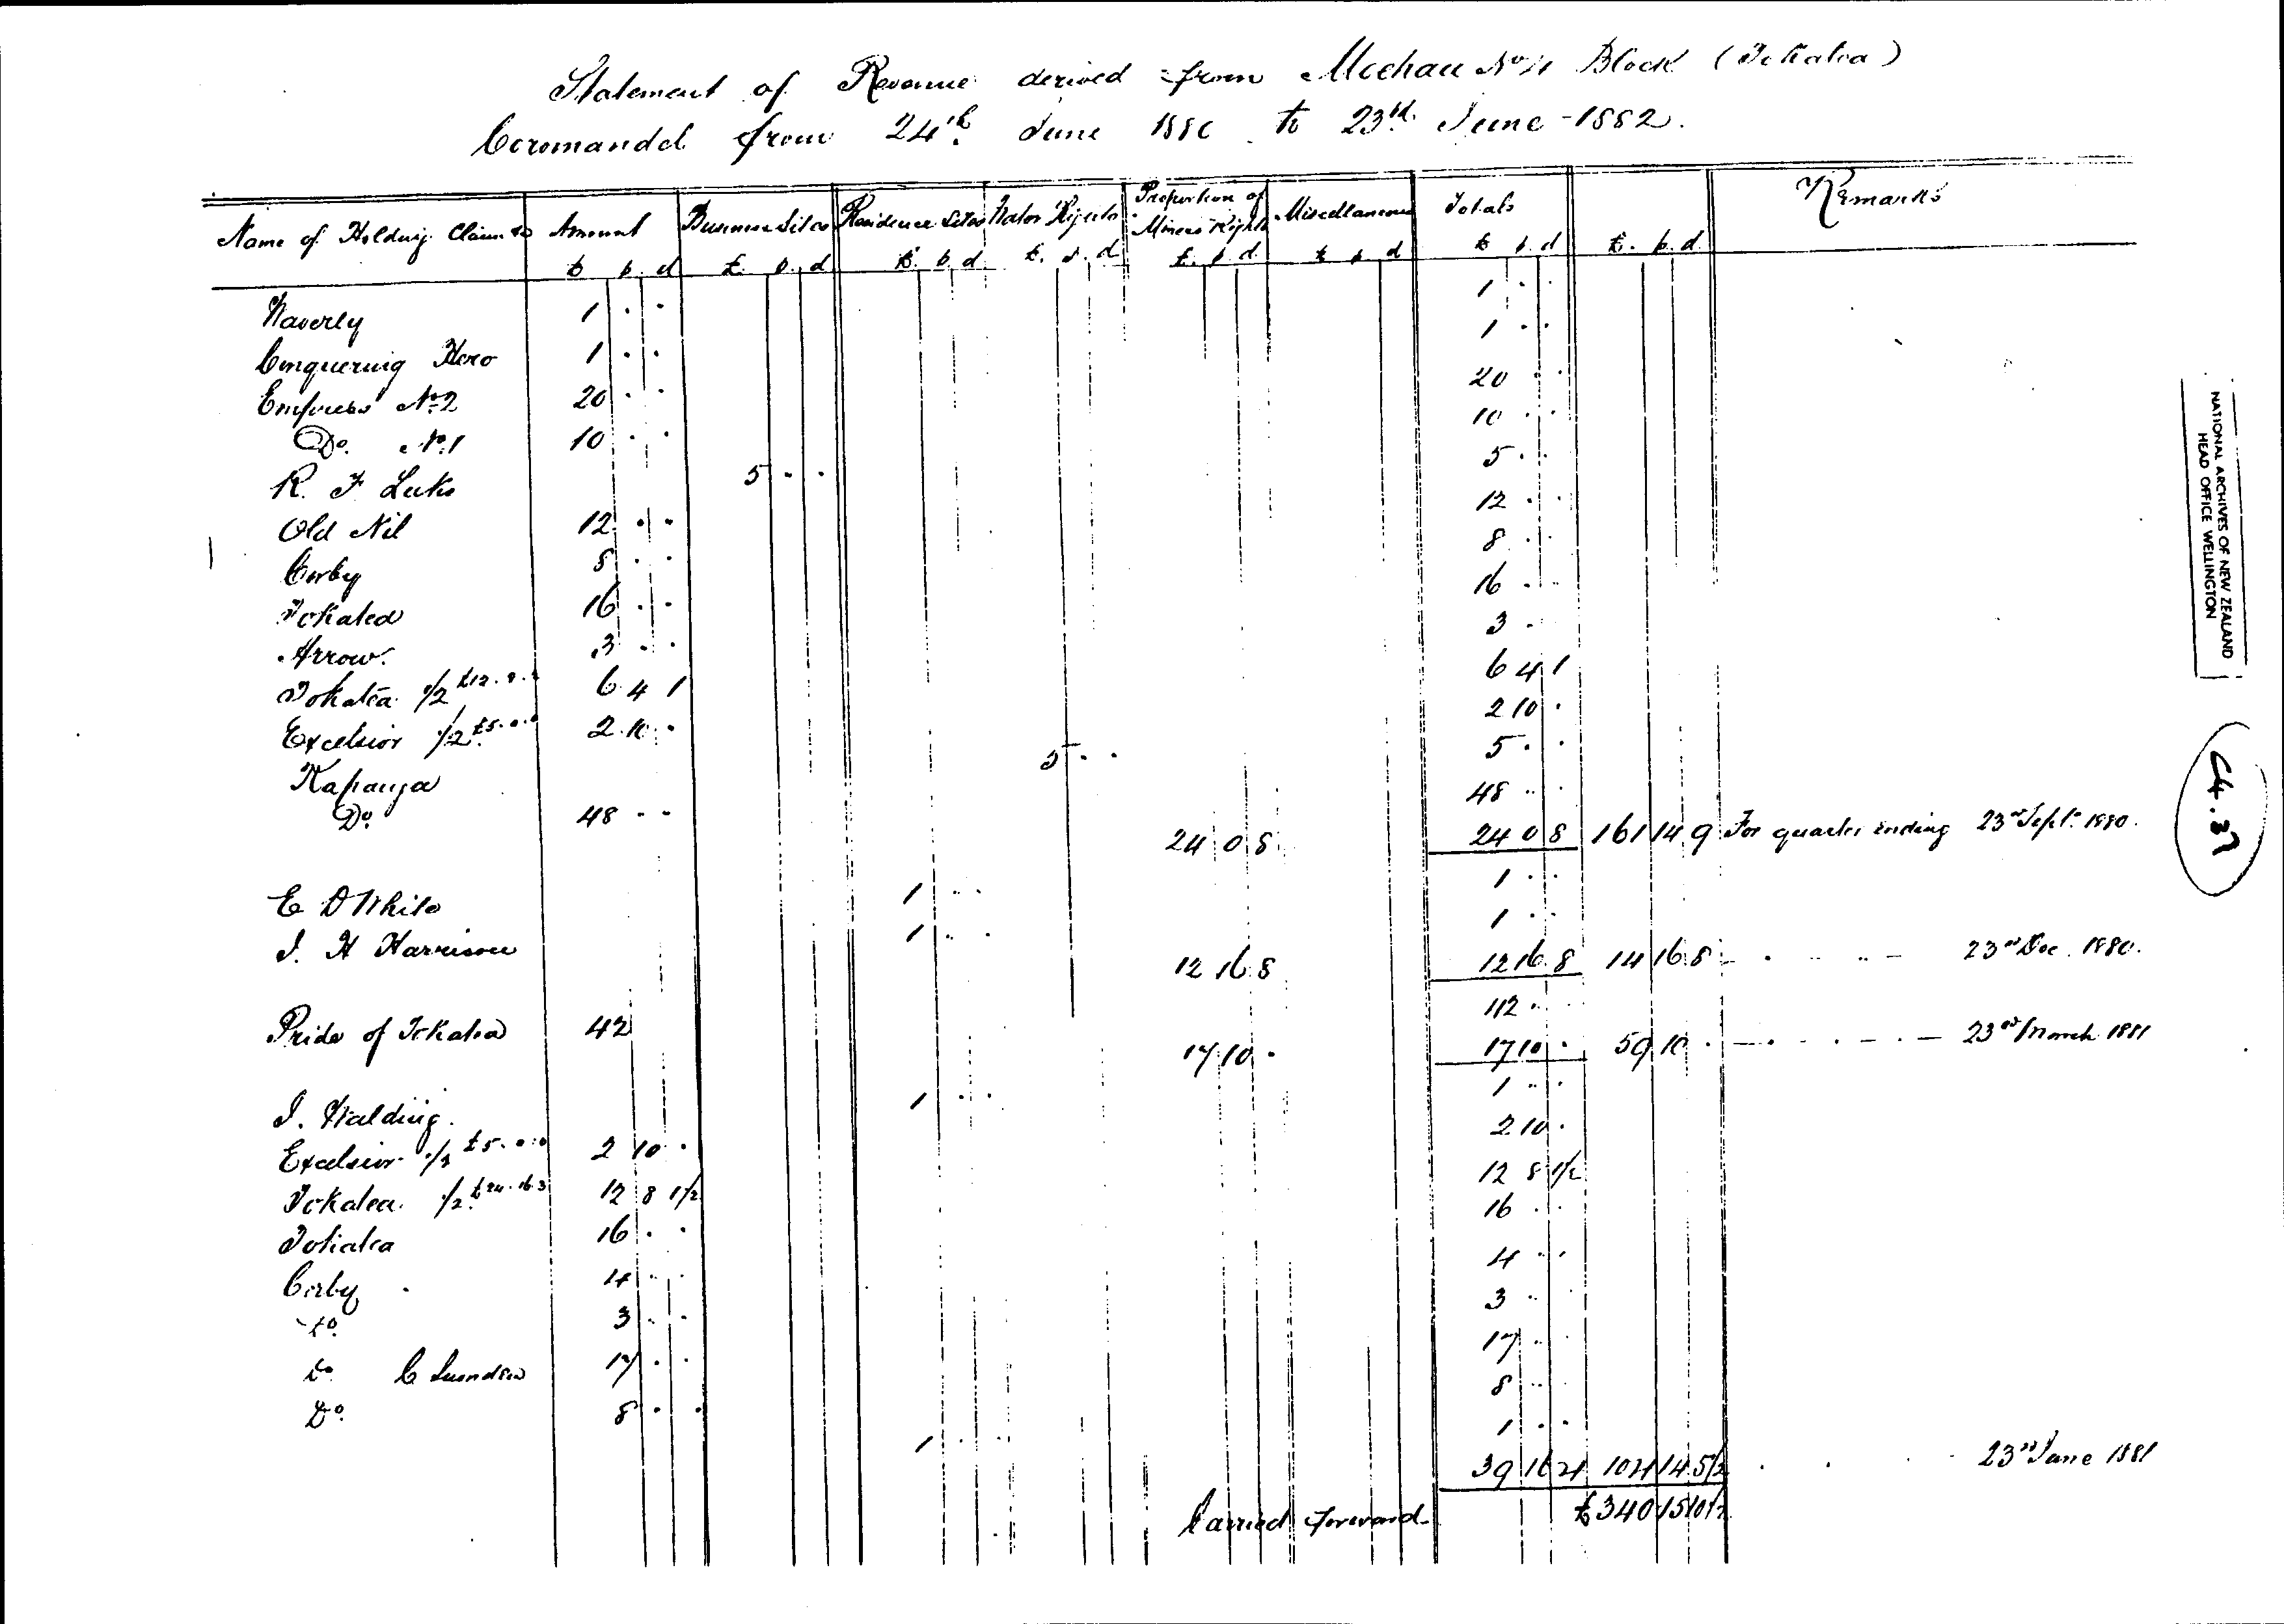 Statement of Revenue derived from Moehau No 4 Block (Tokatea)
Coromandel from 24th June 1880 to 23rd June 1882.
Name of Holding Claim &c Amount Business Sites Residence Sites Water Rights Proportion of Miners Rights Miscellaneous Totals Remarks
£ s d £ s d £ s d £ s d £ s d £ s d £ s d £ s d
Waverly 1 . . 1 . .
Conquering Hero 1 . . 1 . .
Empress No 2 20 . . 20 . .
Do. No. 1 10 . . 10 . .
R. F Luks 5 . . 5 . .
Old Nil 12 . . 12 . .
Corby 8 . . 8 . .
Tokatea 16 . . 16 . .
Arrow. 3 . . 3 . .
Tokatea 1/2 6 4 1 6 4 1
Excelsior 1/2 £5.0.0 2 10 . 2 10 .
Kapanga 5 . . 5 . .
Do. 48 . . 48 . .
24 0 8 24 0 8 161 14 9 For quarter ending 23rd Sept. 1880.
E D White 1 . . 1 . .
J. H Harrison 1 . . 1 . .
12 16 8 12 16 8 14 16 8 23rd Dec. 1880.
Pride of Tokatea 42 42 . .
17 10 . 17 10 . 59 10 . 23rd March 1881
J. Walding. 1 . . 1 . .
Excelsior 1/2 £5.0.0 2 10 . 2 10 .
Tokatea 1/2 £24.16.3 12 8 1/2 12 8 1/2
Tokatea 16 . . 16 . .
Corby 4 . . 4 . .
Do. 3 . . 3 . .
Do C 17 . . 17 . .
Do. 8 . . 8 . .
1 . . 1 . .
39 16 4 104 14 5/2 23rd June 1881
Carried forward. £340 15 10 1/2
NATIONAL ARCHIVES OF NEW ZEALAND
HEAD OFFICE WELLINGTON